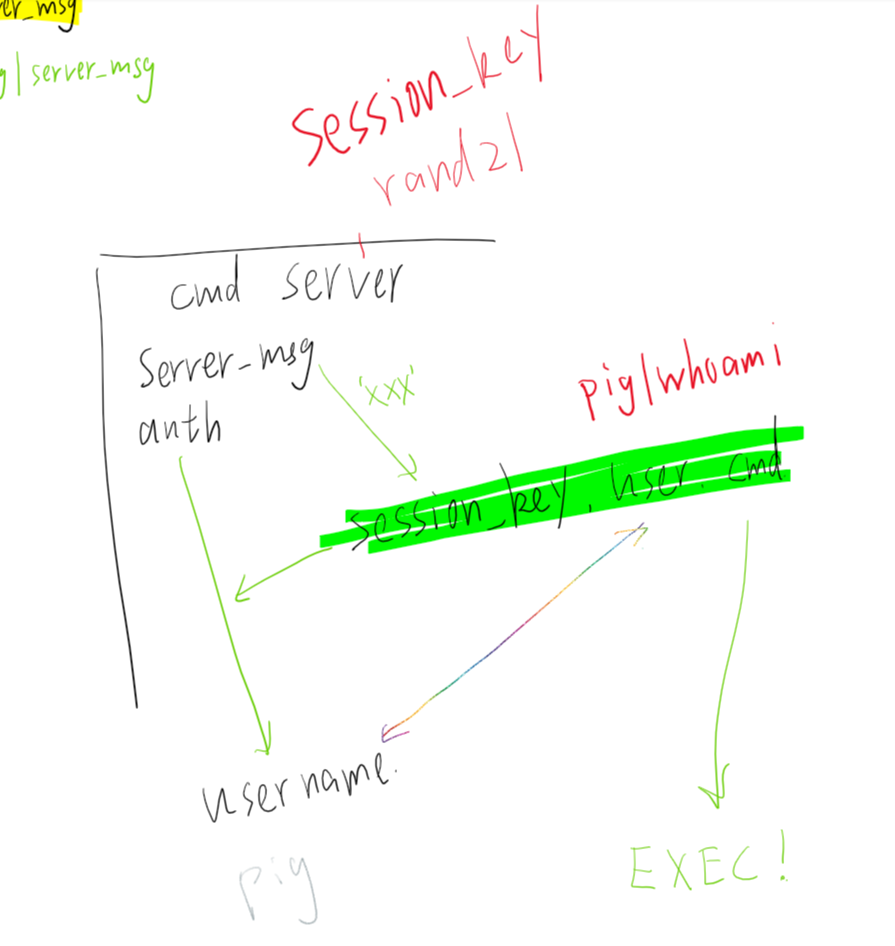 er_msg
g|server_msg
session_key
rand21
cmd server
server-msg
auth
'xxx'
pig|whoami
session_key.user.cmd
username.
pig
EXEC!